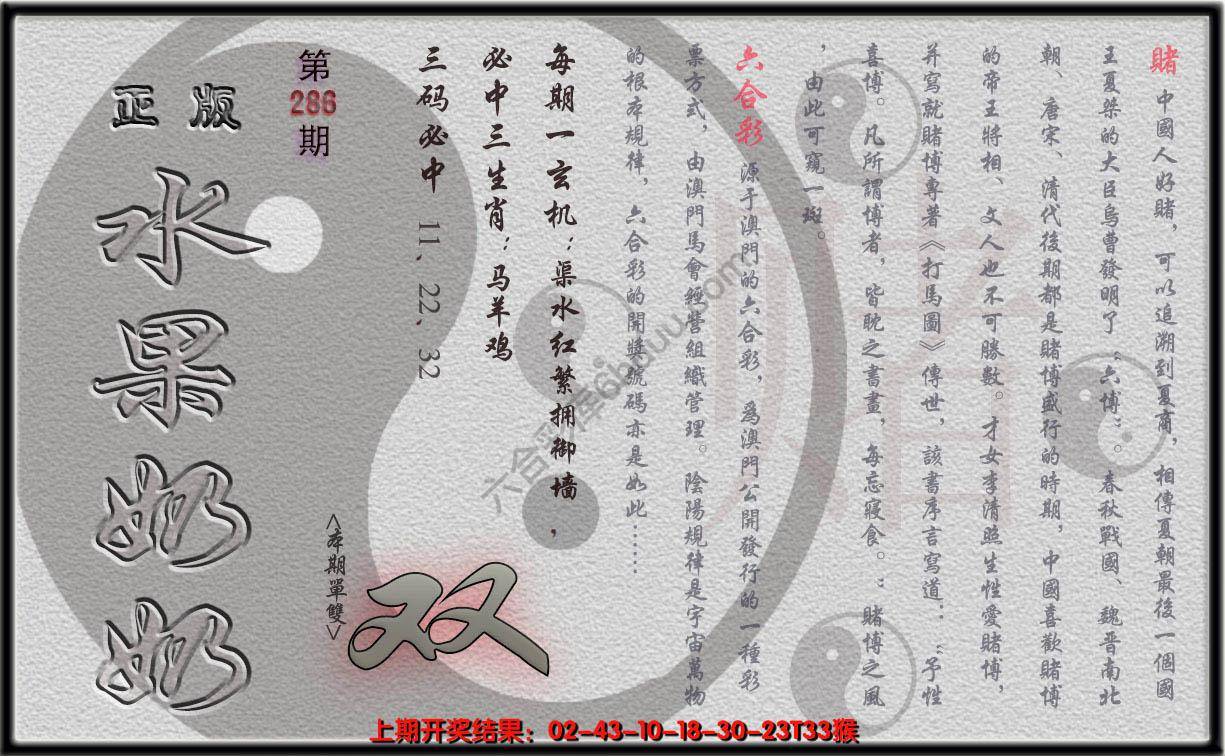 賭 中國人好賭，可以追溯到夏商，相傳夏朝最後一個國
王夏桀的大臣烏曹發明了“六博”。春秋戰國、魏晋南北
朝、唐宋、清代後期都是賭博盛行的時期，中國喜歡賭博
的帝王將相、文人也不可勝數。才女李清照生性愛賭博，
并寫就賭博專著《打馬圖》傳世，該書序言寫道：“予性
喜博。凡所謂博者，皆耽之晝，每忘寢食。”賭博之風
，由此可窺一斑。
六合彩 源于澳門的六合彩，爲澳門公開發行的一種彩
票方式，由澳門馬會經營組織管理。陰陽規律是宇宙萬物
的根本規律，六合彩的開獎號碼亦是如此……
每期一玄机：渠水红繁拥御墙，
必中三生肖：马羊鸡
三码必中 11、22、32
<本期單雙>
双
第
286
期
正版
水果奶奶
六合彩库6huuu.com
上期开奖结果：02-43-10-18-30-23T33猴